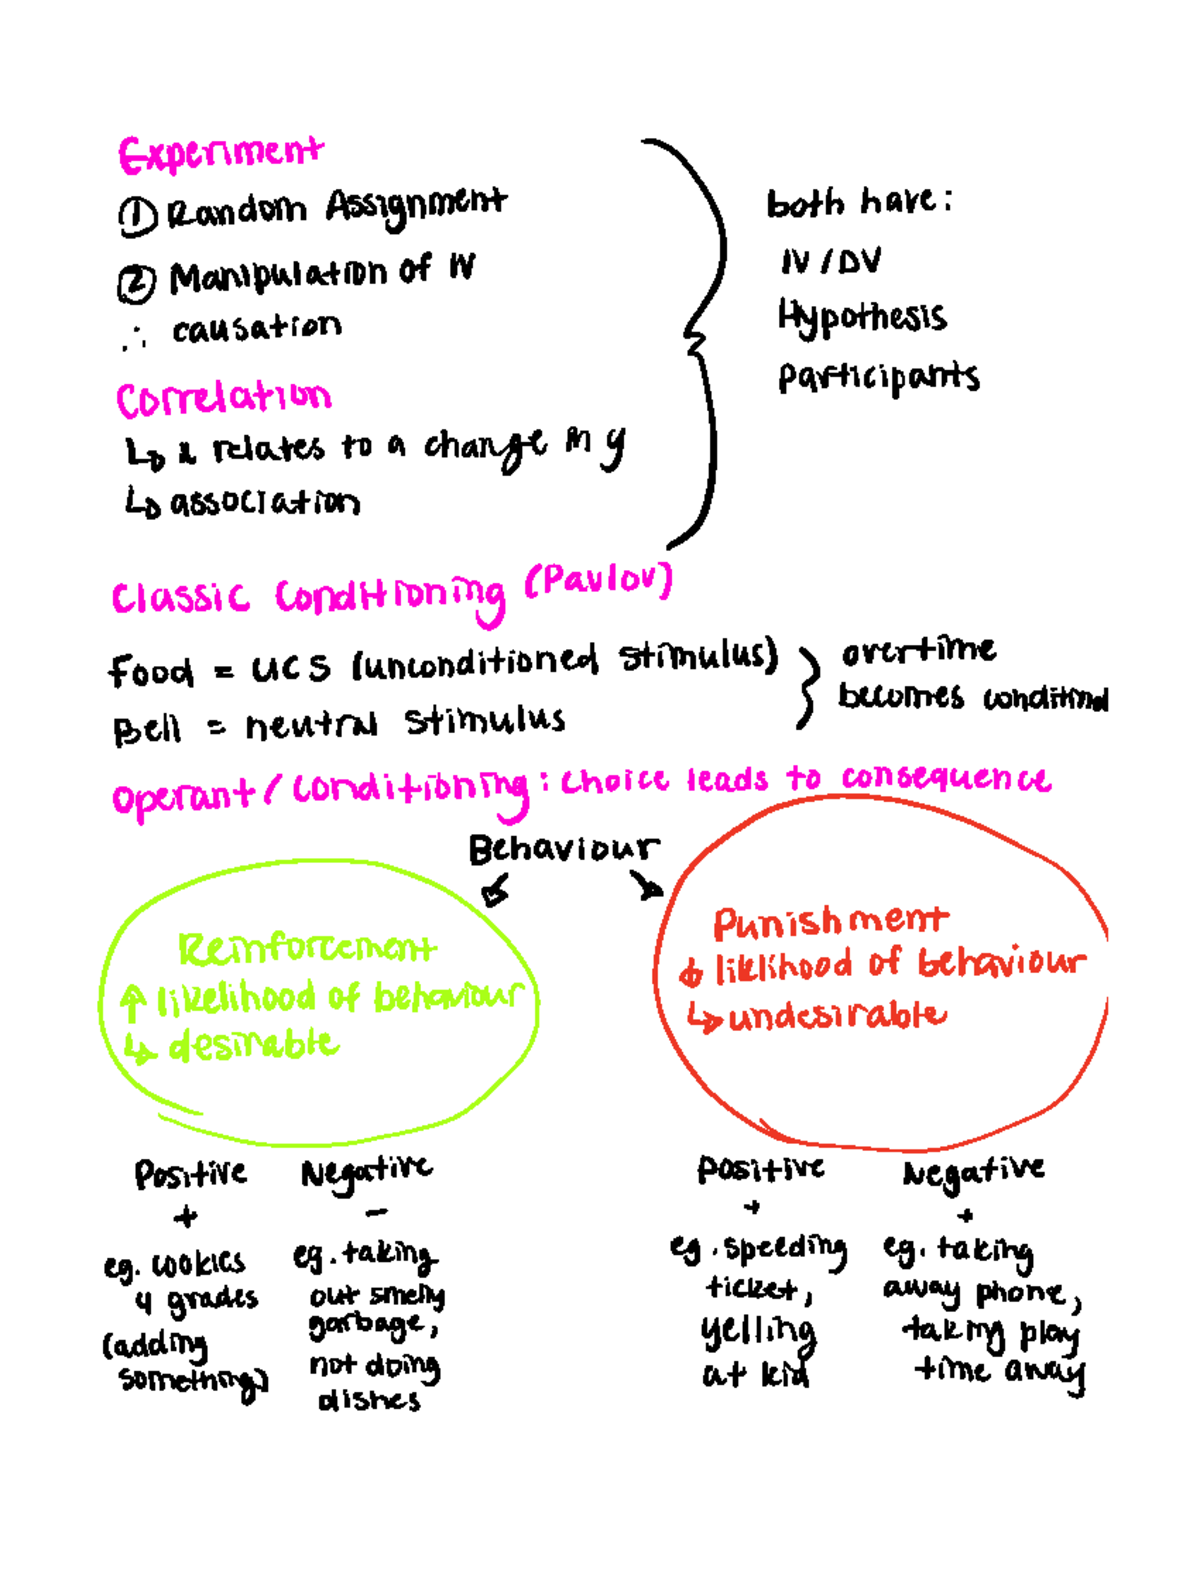 Experiment
① Random Assignment
② Manipulation of IV
∴ causation
Correlation
↳ x relates to a change in y
↳ association
both have:
IV / DV
Hypothesis
participants
Classic Conditioning (Pavlov)
Food = UCS (unconditioned stimulus)
Bell = neutral stimulus
overtime
becomes conditined
Operant / conditioning : choice leads to consequence
Behaviour
Reinforcement
↑ likelihood of behaviour
↳ desirable
Punishment
↓ liklihood of behaviour
↳ undesirable
Positive
+
eg. cookies
4 grades
(adding
something)
Negative
−
eg. taking
out smelly
garbage,
not doing
dishes
positive
+
eg. speeding
ticket,
yelling
at kid
Negative
+
eg. taking
away phone,
taking play
time away